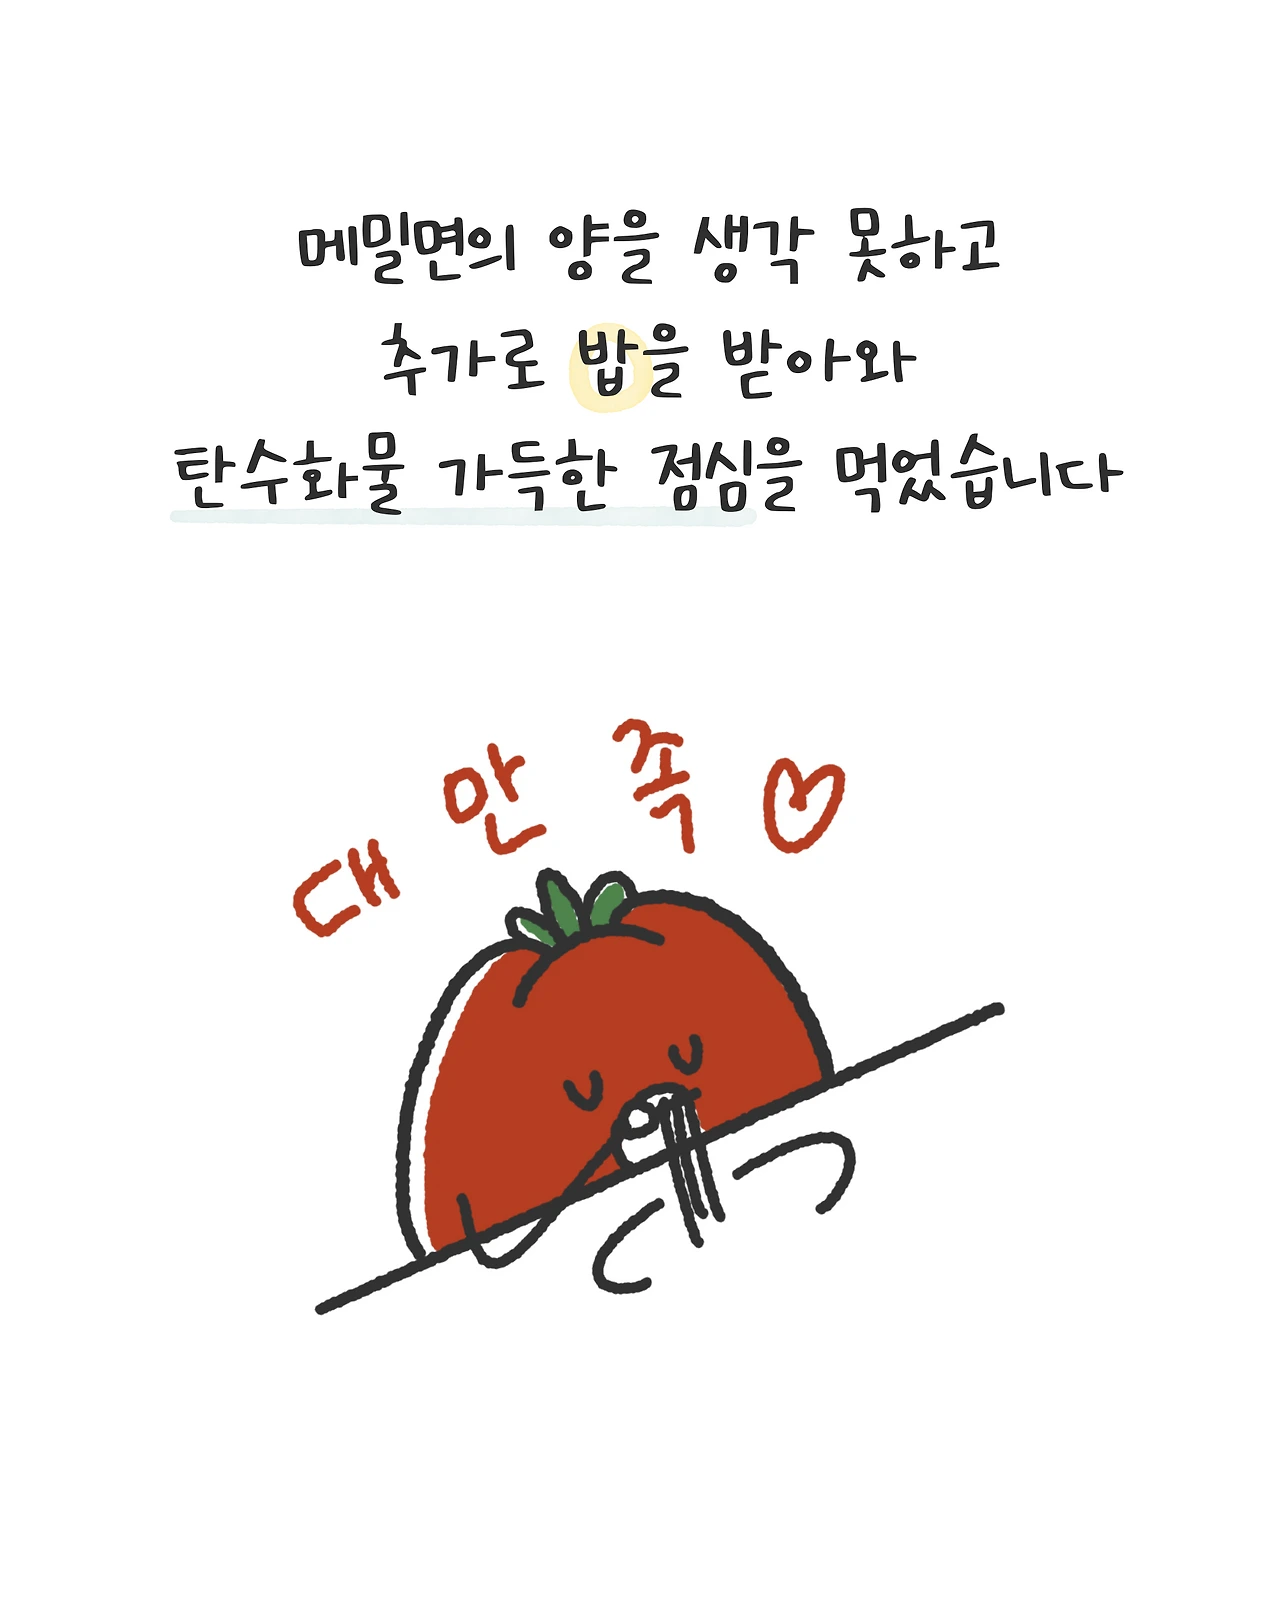 메밀면의 양을 생각 못하고
추가로 밥을 받아와
탄수화물 가득한 점심을 먹었습니다
대 만 족 ♡